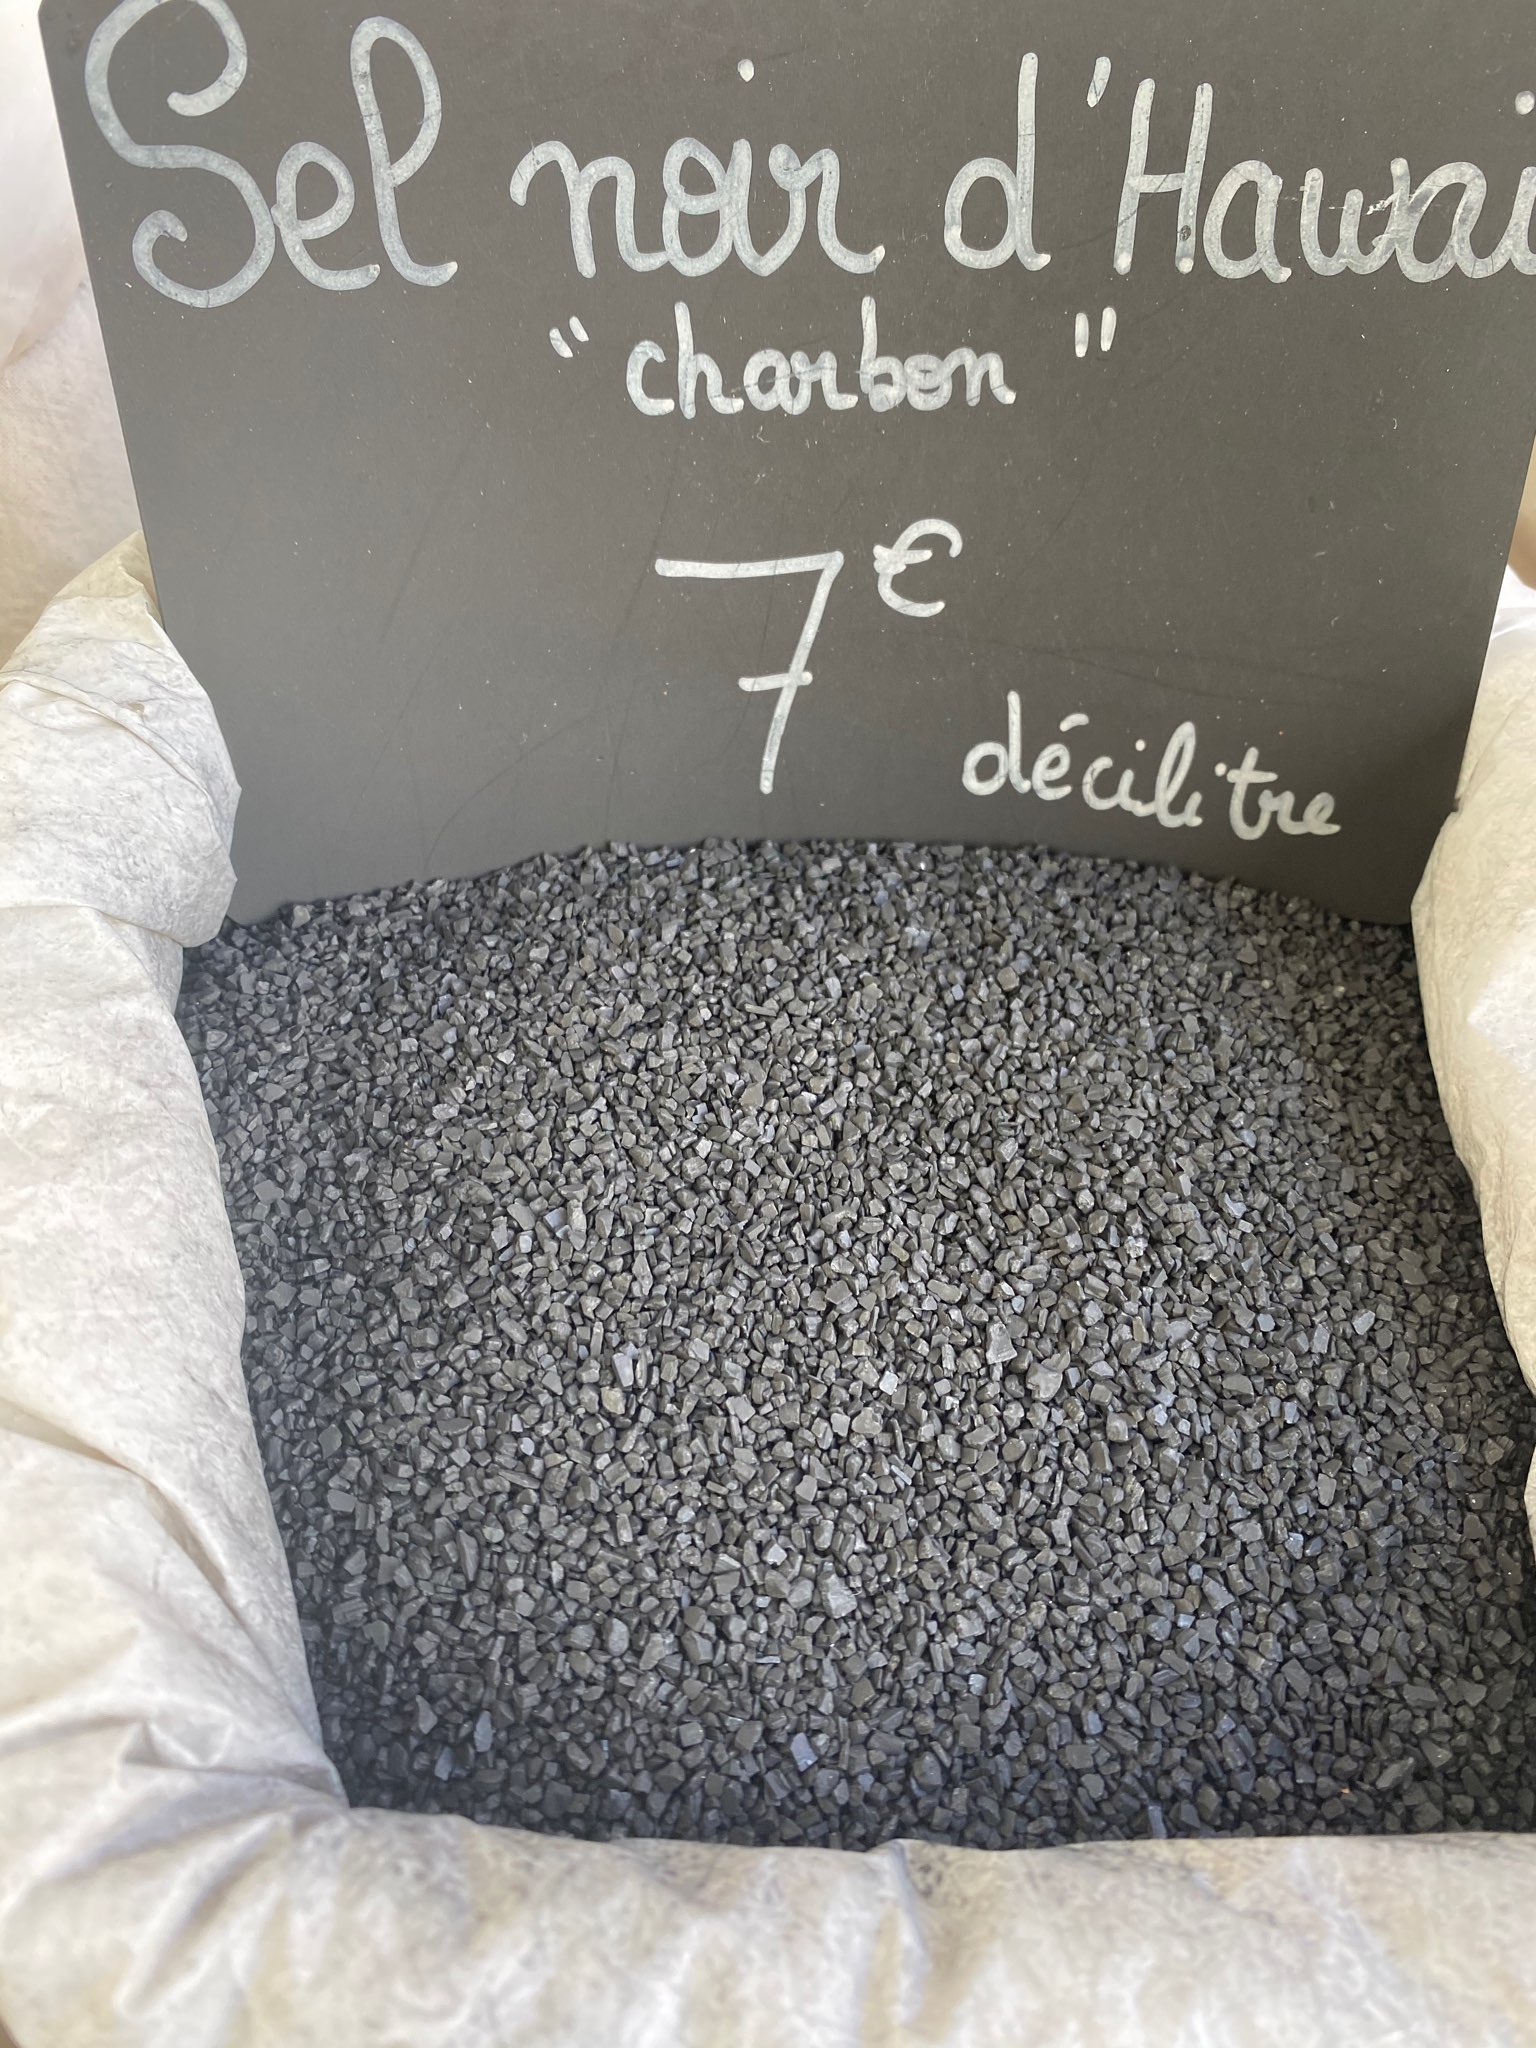 Sel noir d'Hawai
"charbon"
7€
décilitre